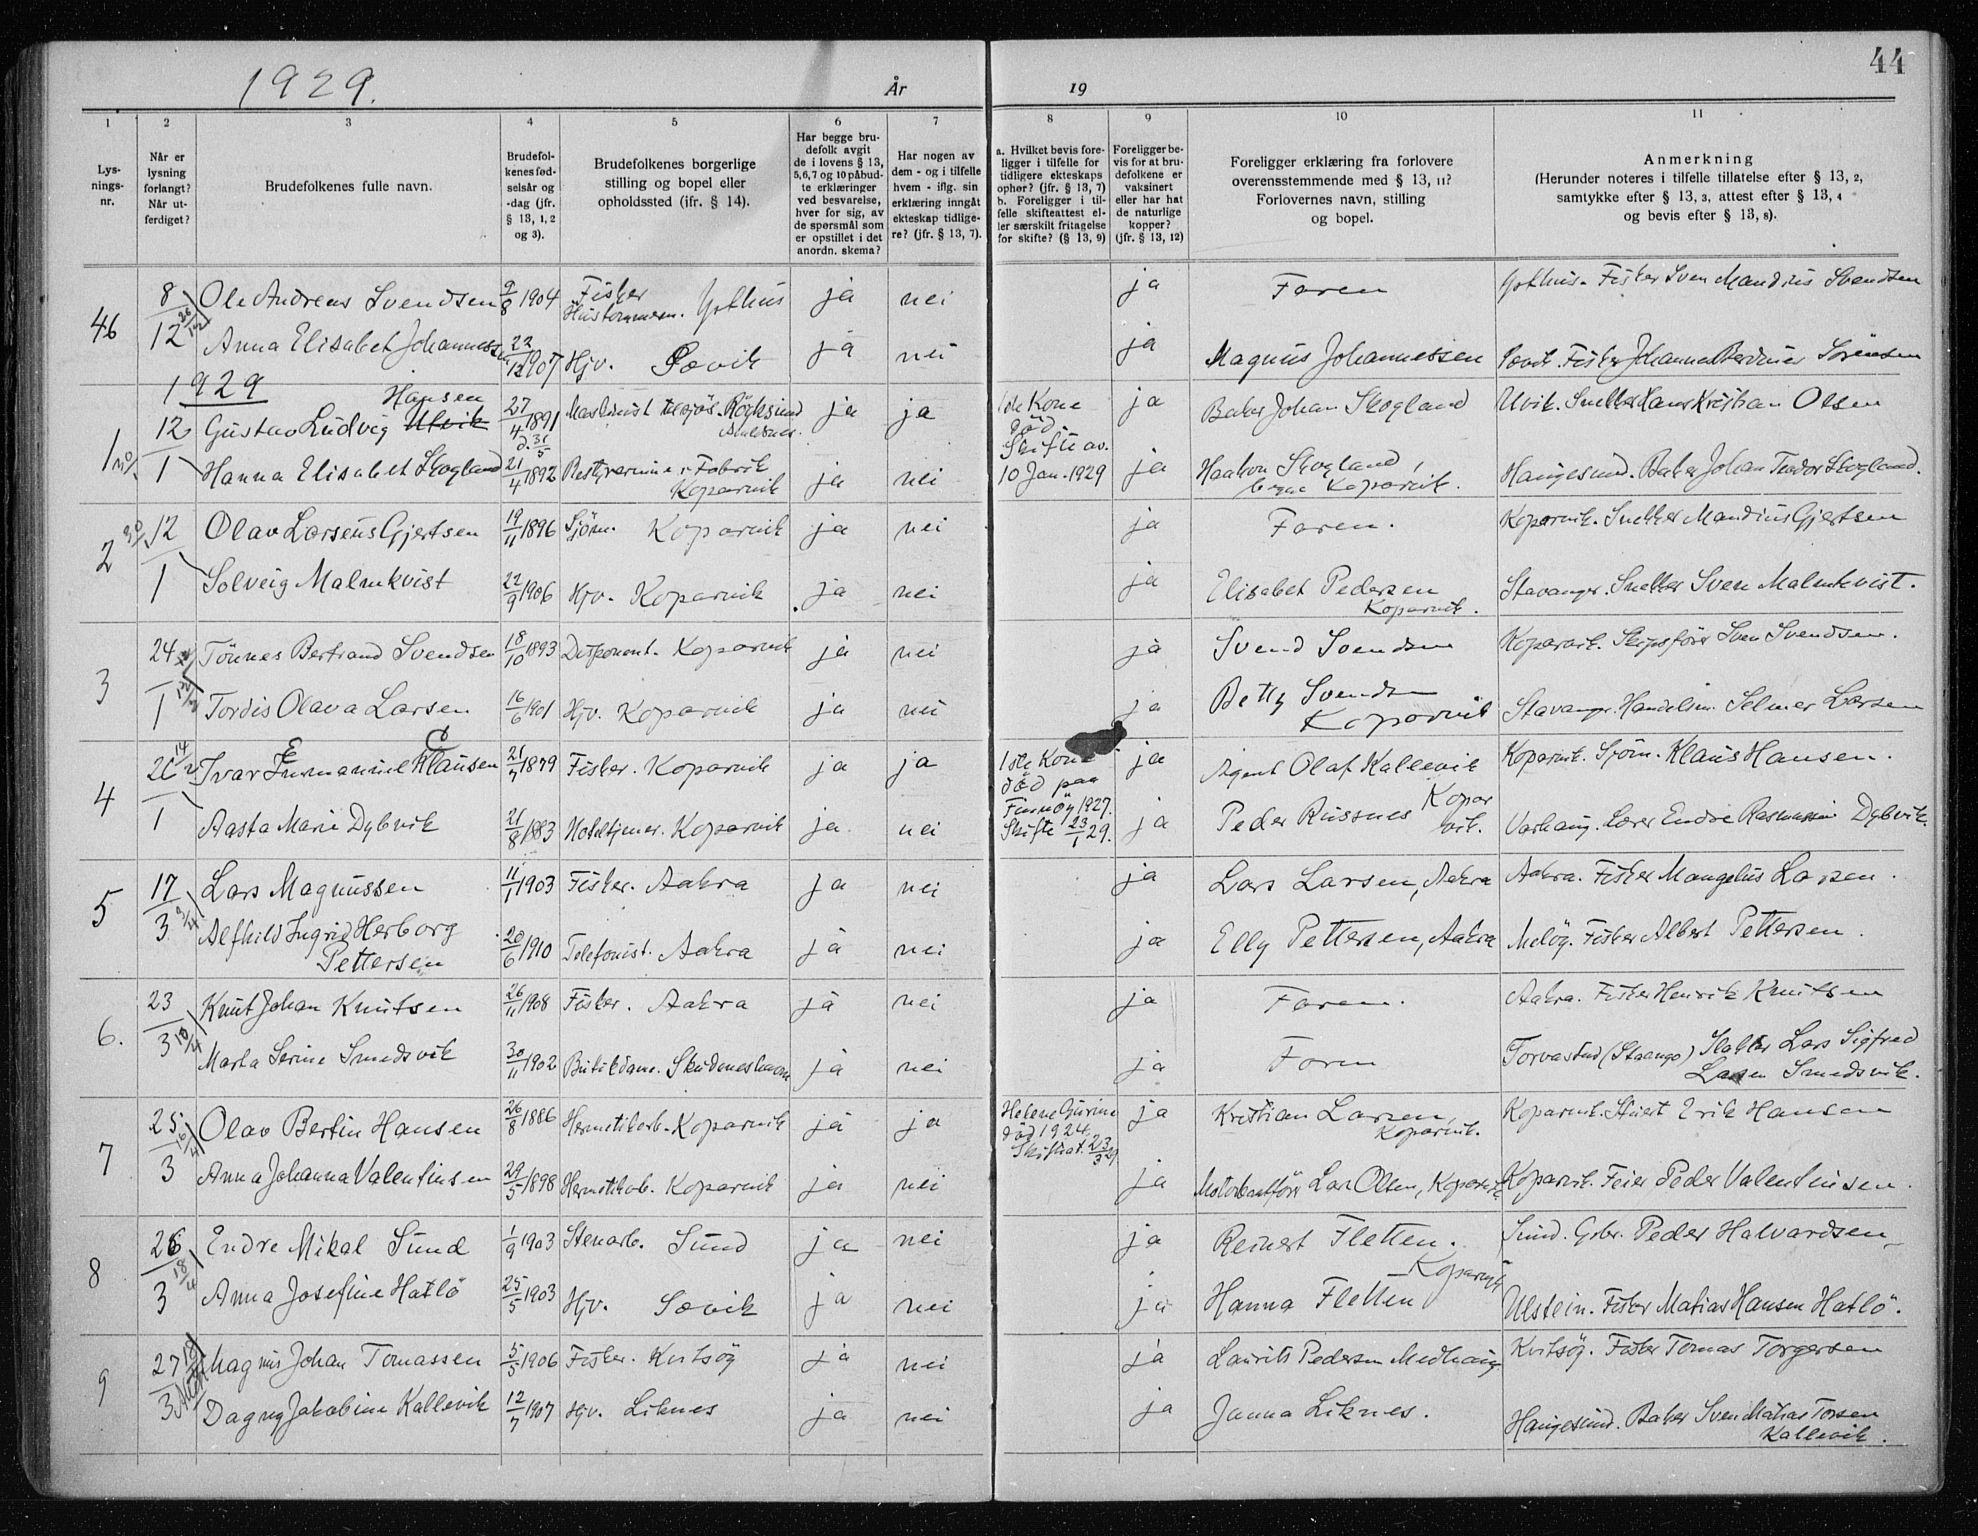 44
1929. År 19
1 2 3 4 5 6 7 8 9 10 11
Lys-nings-nr.
Når er lysning forlangt? Når ut-ferdiget?
Brudefolkenes fulle navn.
Brudefol-kenes fød-selsår og -dag (jfr. § 13, 1, 2 og 3).
Brudefolkenes borgerlige stilling og bopel eller opholdssted (ifr. § 14).
Har begge bru-defolk avgit de i lovens § 13, 5,6,7 og 10 påbud-te erklæringer ved besvarelse, hver for sig, av de spørsmål som er opstillet i det anordn. skema?
Har nogen av dem - og i tilfelle hvem - iflg. sin erklæring inngåt ekteskap tidlige-re? (jfr. § 13, 7).
a. Hvilket bevis fore-ligger i tilfelle for tidligere ekteskaps ophør? (jfr. § 13, 7) b. Foreligger i til-felle skifteattest el-ler særskilt fritagelse for skifte? (§ 13, 9)
Foreligger be-vis for at bru-defolkene er vaksinert eller har hat de naturlige kopper? (jfr. § 13, 12)
Foreligger erklæring fra forlovere overensstemmende med § 13, 11? Forlovernes navn, stilling og bopel.
Anmerkning (Herunder noteres i tilfelle tillatelse efter § 13, 2, samtykke efter § 13, 3, attest efter § 13, 4 og bevis efter § 13, 8).
46 8/12 Ole Andreas Svendsen 9/8 1904 Fisker ja nei ja Faren Fisker Sven Mandius Svendsen
Anna Elisabet Johannessen 22/12 1907 Hjv. Sævik ja nei ja Magnus Johannessen Sævik. Fisker Sörensen
1929
1 12/1 Gustav Ludvig Ulvik Hansen 27/4 1891 Maskinist ja ja 1ste Kone död. ja Baker Johan Skogland Ulvik. Snekker Hans Kristian Olsen
Hanna Elisabet Skogland 21/4 1892 Bestyrerinne v. Fabrik Kopervik ja nei Skifte av. 10 Jan. 1929 ja Haakon Skogland, begge Kopervik. Haugesund. Baker Johan Teodor Skogland.
2 12/1 Olav Larseus Gjertsen 19/11 1896 Sjöm. Kopervik ja nei ja Faren. Kopervik. Snekker Mandius Gjertsen
Solveig Malmkvist 22/9 1906 Hjv. Kopervik ja nei ja Elisabet Pedersen Kopervik. Stavanger. Snekker Sven Malmkvist.
3 24/1 Tönnes Bertrand Svendsen 18/10 1893 Disponent. Kopervik ja nei ja Svend Svendsen Kopervik. Skipsförer Sven Svendsen.
Tordis Olava Larsen 16/6 1901 Hjv. Kopervik ja nei ja Betty Svendsen Kopervik Stavanger. Handelsm. Selmer Larsen
4 26/1 Ivar Emmanuel Klausen 21/7 1879 Fisker. Kopervik ja ja 1ste Kone död paa ja Agent Olaf Kallevik Kopervik. Sjöm. Klaus Hansen.
Aasta Marie Dybvik 21/8 1883 Hoteltjener. Kopervik ja nei Finnöy 1927. Skifte 23/1 29. ja Peder Russnes Kopervik. Varhaug. Lærer Endre Rasmussen Dybvik.
5 17/3 Lars Magnussen 11/1 1903 Fisker. Aakra ja nei ja Lars Larsen, Aakra Aakra. Fisker Mangelus Larsen.
Alfhild Ingrid Herborg Pettersen 20/6 1910 Telefonist. Aakra ja nei ja Elly Pettersen, Aakra Melöy. Fisker Albert Pettersen.
6. 23/3 Knut Johan Knutsen 26/11 1908 Fisker. Aakra ja nei ja Faren. Aakra. Fisker Henrik Knutsen
Marta Serine Smedsvik 30/11 1902 Butikdame. Skudeneshavn ja nei ja Faren Torvastad Lars Sigfred Larsen Smedsvik.
7 25/3 Olav Bertin Hansen 26/8 1886 Hermetikarb. Kopervik ja ja Helene Gurine död 1924. Skifteat. 23/3 29 ja Kristian Larsen, Kopervik. Kopervik. Stuert Erik Hansen
Anna Johanna Valentinsen 29/5 1898 Hermetikarb. Kopervik ja nei ja Motorbaatförer Lars Olsen, Kopervik Kopervik. Feier Peder Valentinsen.
8 26/3 Endre Mikal Sund 1/9 1903 Stenarb. Sund ja nei ja Reinert Fletten. Sund. Gbr. Peder Halvardsen
Anna Josefine Hatlö 25/5 1903 Hjv. Sævik ja nei ja Hanna Fletten Kopervik Ulstein. Fisker Matias Hansen Hatlö.
9 27/3 Magnus Johan Tomassen 5/5 1906 Fisker. Kvitsöy ja nei ja Laurits Pedersen Medhaug Kvitsöy. Fisker Tomas Torgersen
Dagny Jakobine Kallevik 12/7 1907 Hjv. Liknes ja nei ja Janna Liknes. Haugesund. Baker Sven Matias Torsen Kallevik.